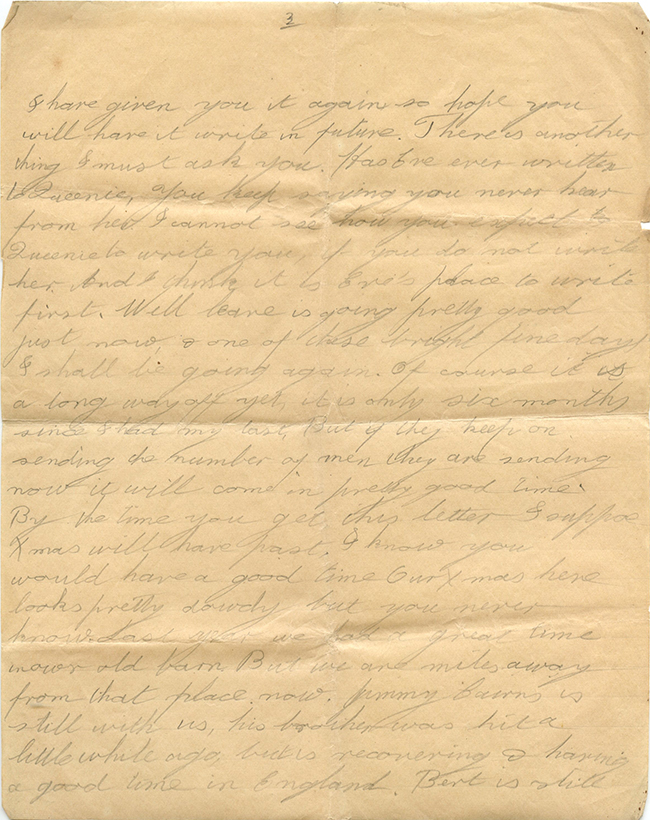 3
I have given you it again so hope you
will have it write in future. There is another
thing I must ask you. Has Eve ever written
to Queenie, You keep saying you never hear
from her. I cannot see how you expect to
Queenie to write you, if you do not write
her. And I think it is Eve's place to write
first. Well leave is going pretty good
just now & one of these bright fine days
I shall be going again. Of course it is
a long way off yet, it is only six months
since I had my last, But if they keep on
sending the number of men they are sending
now it will come in pretty good time.
By the time you get this letter I suppose
Xmas will have past. I know you
would have a good time Our Xmas here
looks pretty dowdy but you never
know. Last year we had a great time
in our old barn But we are miles away
from that place now. Jimmy is
still with us, his brother was hit a
little while ago, but is recovering & having
a good time in England. Bert is still